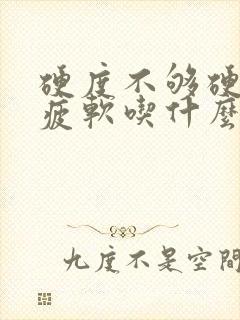 硬度不够硬
疲軟喫什麼
九度不是空間